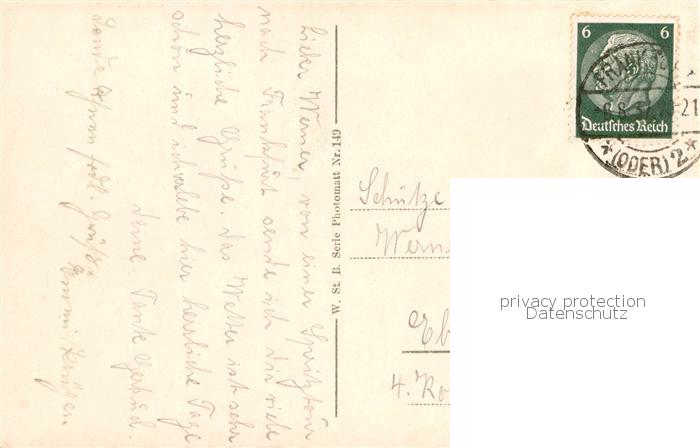 Lieber Werner, von einer Spritztour
nach Frankfurt sende ich Dir viele
herzliche Grüße. Das Wetter ist sehr
schön und ich erlebe hier herrliche Tage
Deine Tante Gertrud.
Sende Ihnen frdl. Grüße
Emmi
W. St. B. Serie Photomatt Nr. 149
6 6
Deutsches Reich
FRANKFURT
8.8.3 -21
*(ODER) 2*
Schütze
Wern
Eb
4. Ko
privacy protection
Datenschutz